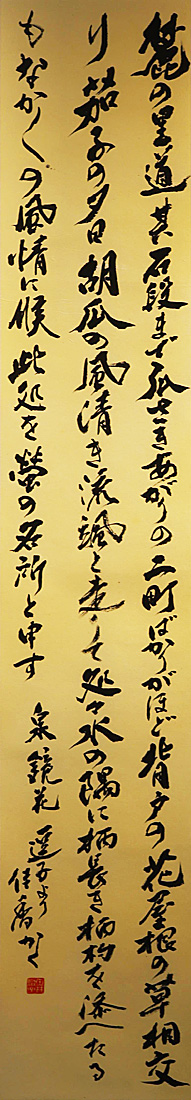 麓の里道其石段まで弧せきあがりの二町ばかりがほど背戸の花屋根の草相交
り茄子の夕日胡瓜の風清き流颯と走て処々水の隅に柄長き柄杓を添へたる
もなか〳〵の風情に候此処を蛍の名所と申す
泉鏡花 逗子より 佳香かく